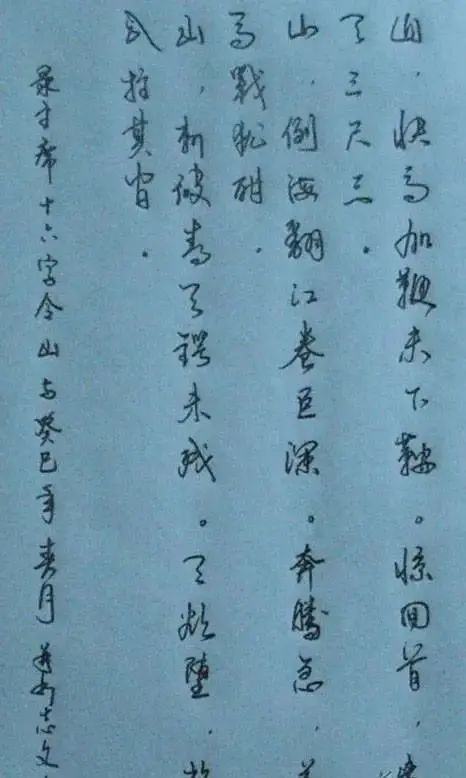 山，快马加鞭未下鞍。惊回首，
天三尺三。
山，倒海翻江卷巨澜。奔腾急，
马戰犹酣。
山，刺破青天锷未残。天欲堕，
以拄其间。
录主席十六字令山与癸巳年春月 志文